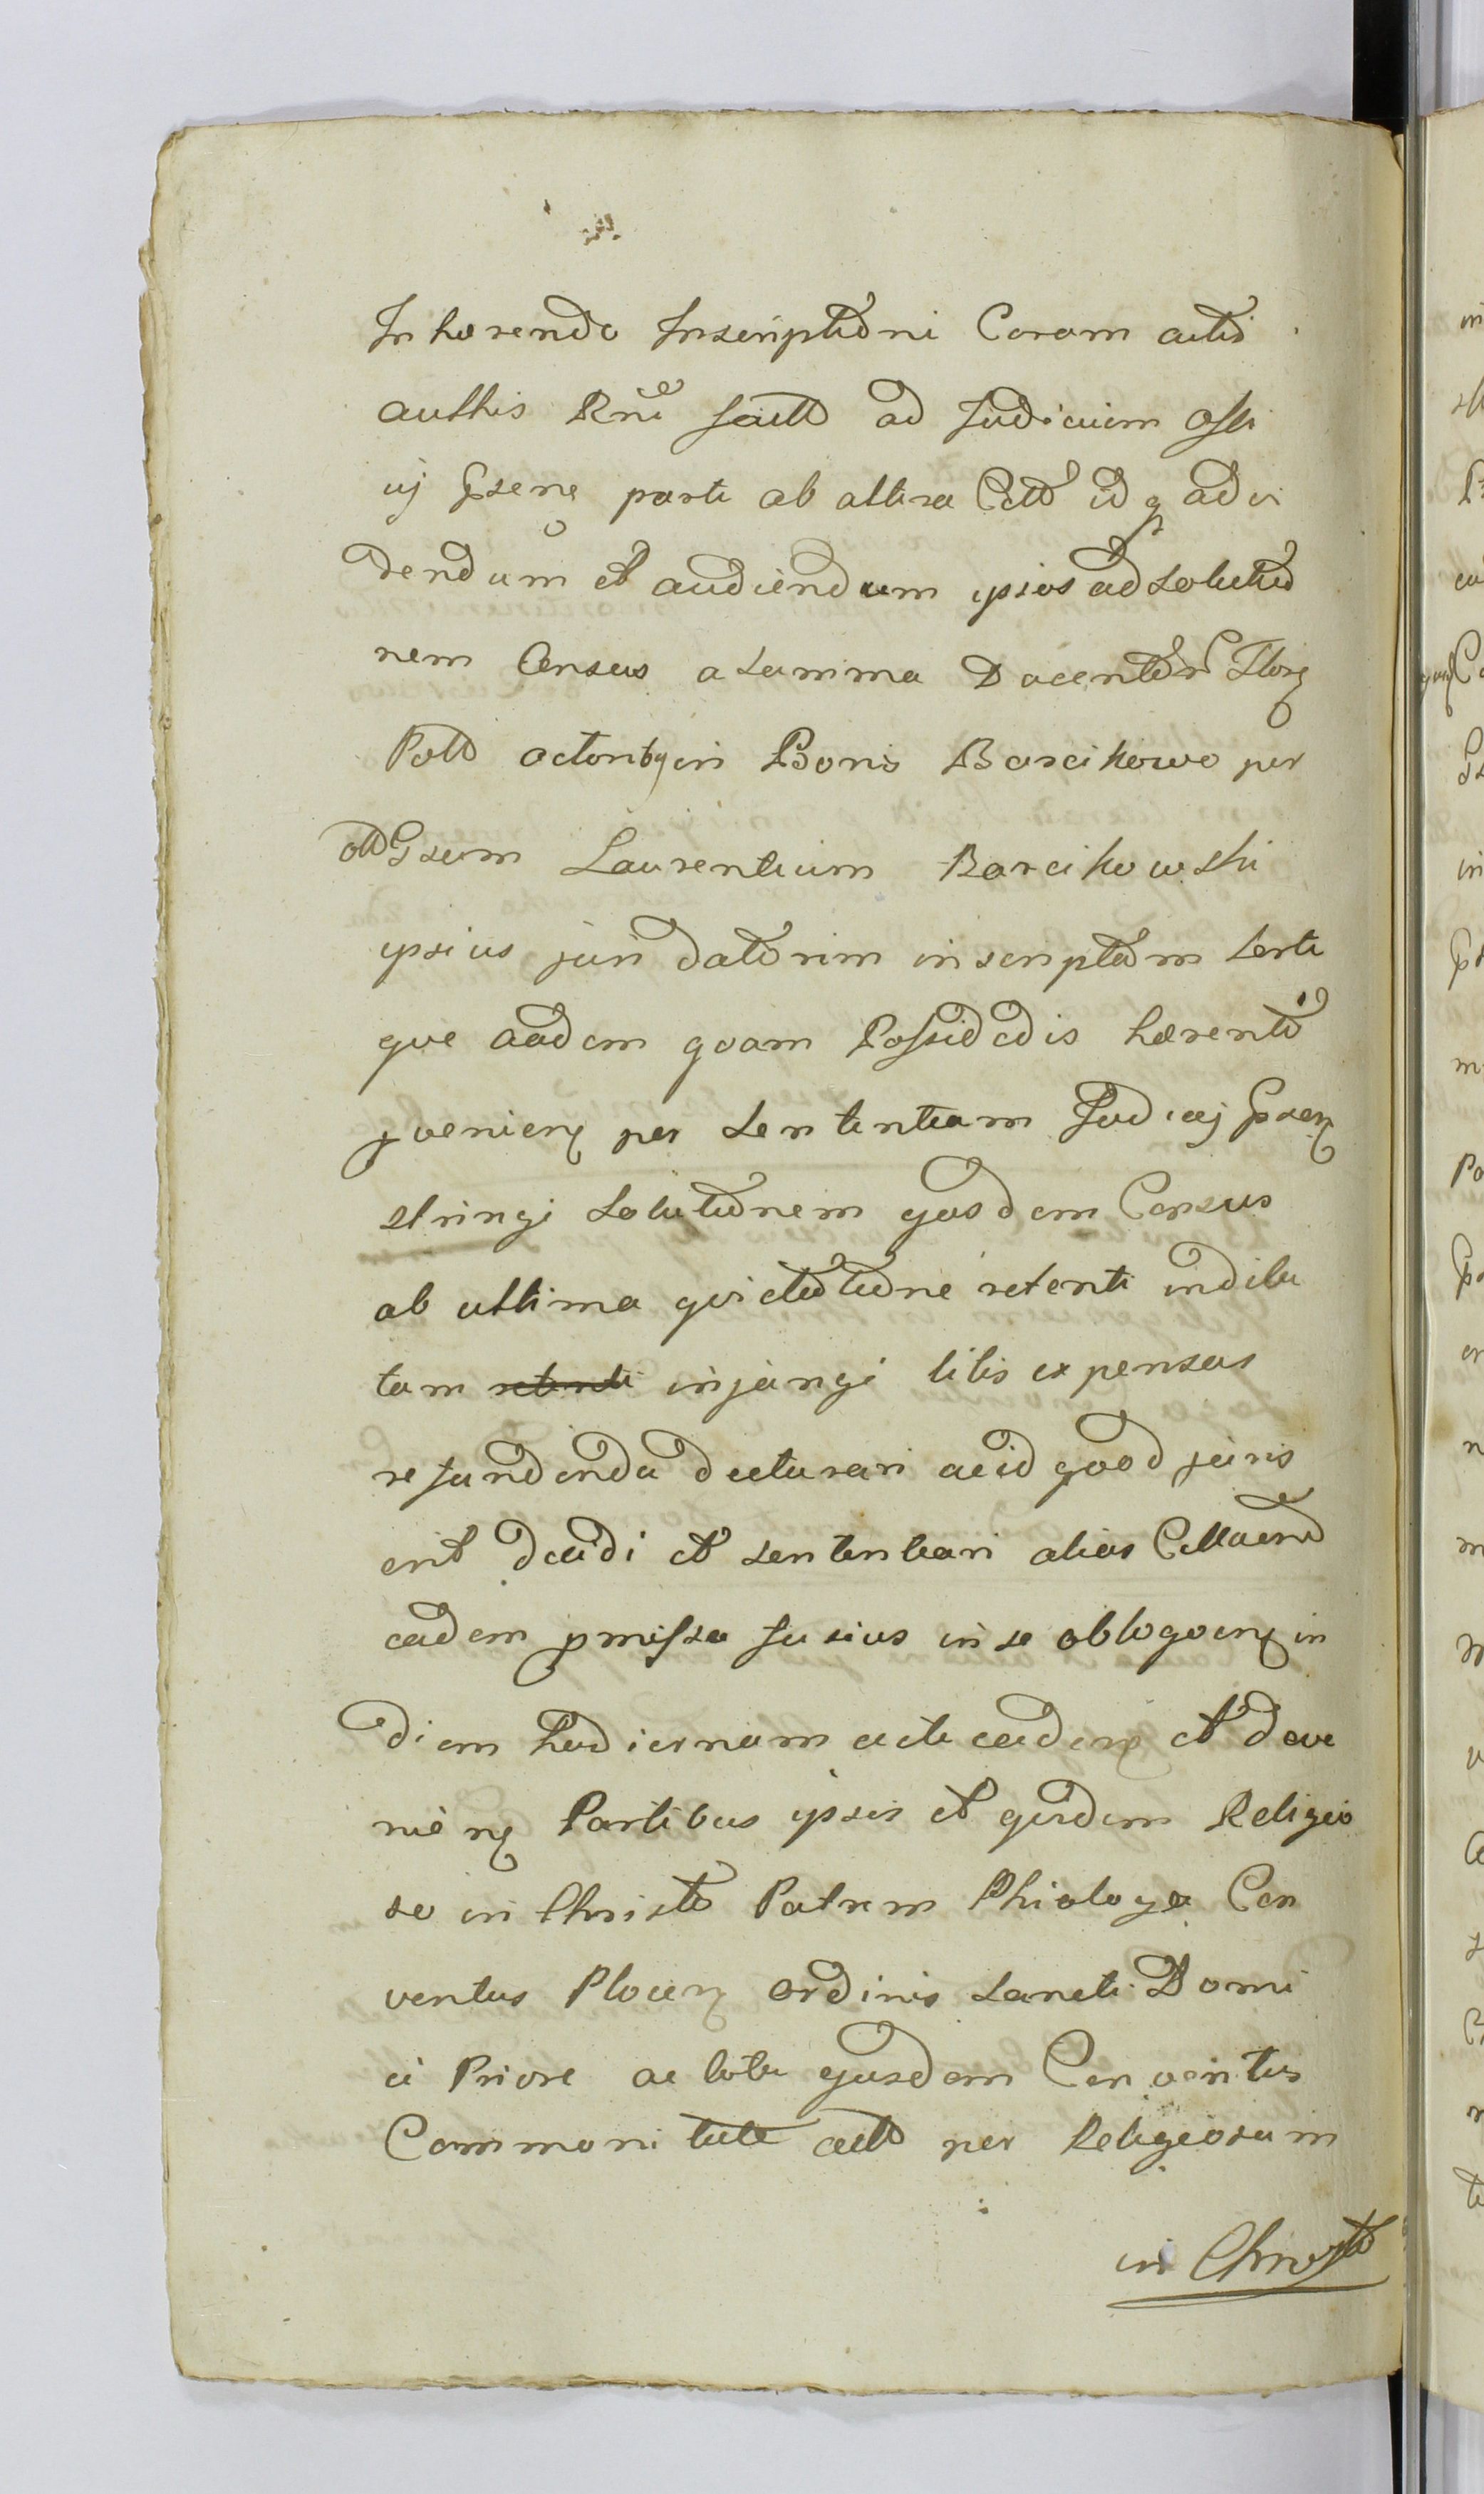 In haerendo Inscriptioni Coram actis
authis Rni factto ad Judicium offi
ij Gzene parti ab altera Citto id q ad vi
dendum et audiendum ipsos ad Solutio
nem Census a Summa Ducentor Flor
Polo actoribq in Bonis Barcikowo per
ollo Gsum Laurentium Barcikowski
ipsius juri datorim inscriptam Certi
que eadem quam Possid edis haerenti
pvenien per Sententiam Judicij Gzen
stringi Solutionem ejusdem Census
ab ultima quietatione retenti indila
tam retenti injungi litis expensas
refundendu declarari ac id quod juris
erit decidi et sententiari alias Cittaoni
eadem pmissa fusius in se obloquen in
diem hodiernam acte cadens et deve
nien Partibus ipsis et quidem Religio
so in Christo Patrem Phiologo Con
ventus Plocen ordinis Sancti Domi
ci Priore ac tota ejusdem Conventus
Communitate actto per Religiosum
in Christo